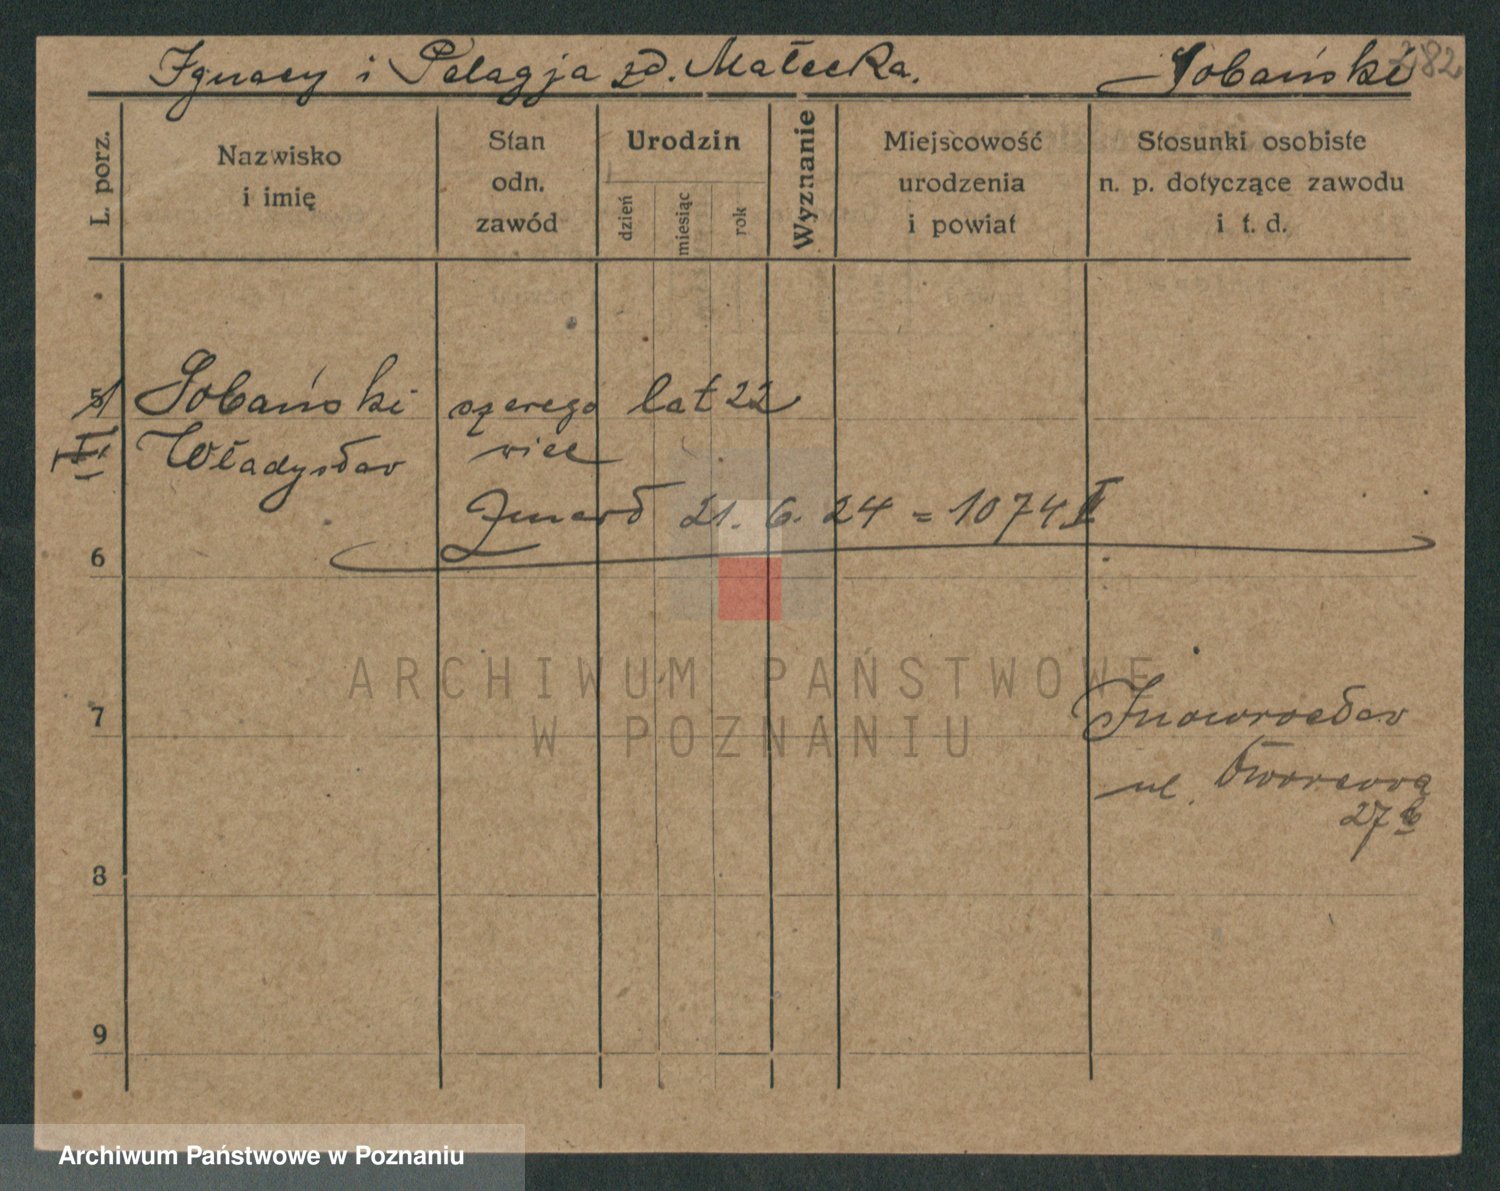 Ignacy i Pelagja zd. Małecka. Sobański 282
L. porz.
Nazwisko
i imię
Stan
odn.
zawód
Urodzin
dzień
miesiąc
rok
Wyznanie
Miejscowość
urodzenia
i powiat
Stosunki osobiste
n. p. dotyczące zawodu
i t. d.
5 Sobański szerego lat 22
II Władysław wiec
Zmarł 21. 6. 24 = 1074 II
6
7 Inowrocław
ul. Dworcowa
27
8
9
ARCHIWUM PAŃSTWOWE
W POZNANIU
Archiwum Państwowe w Poznaniu